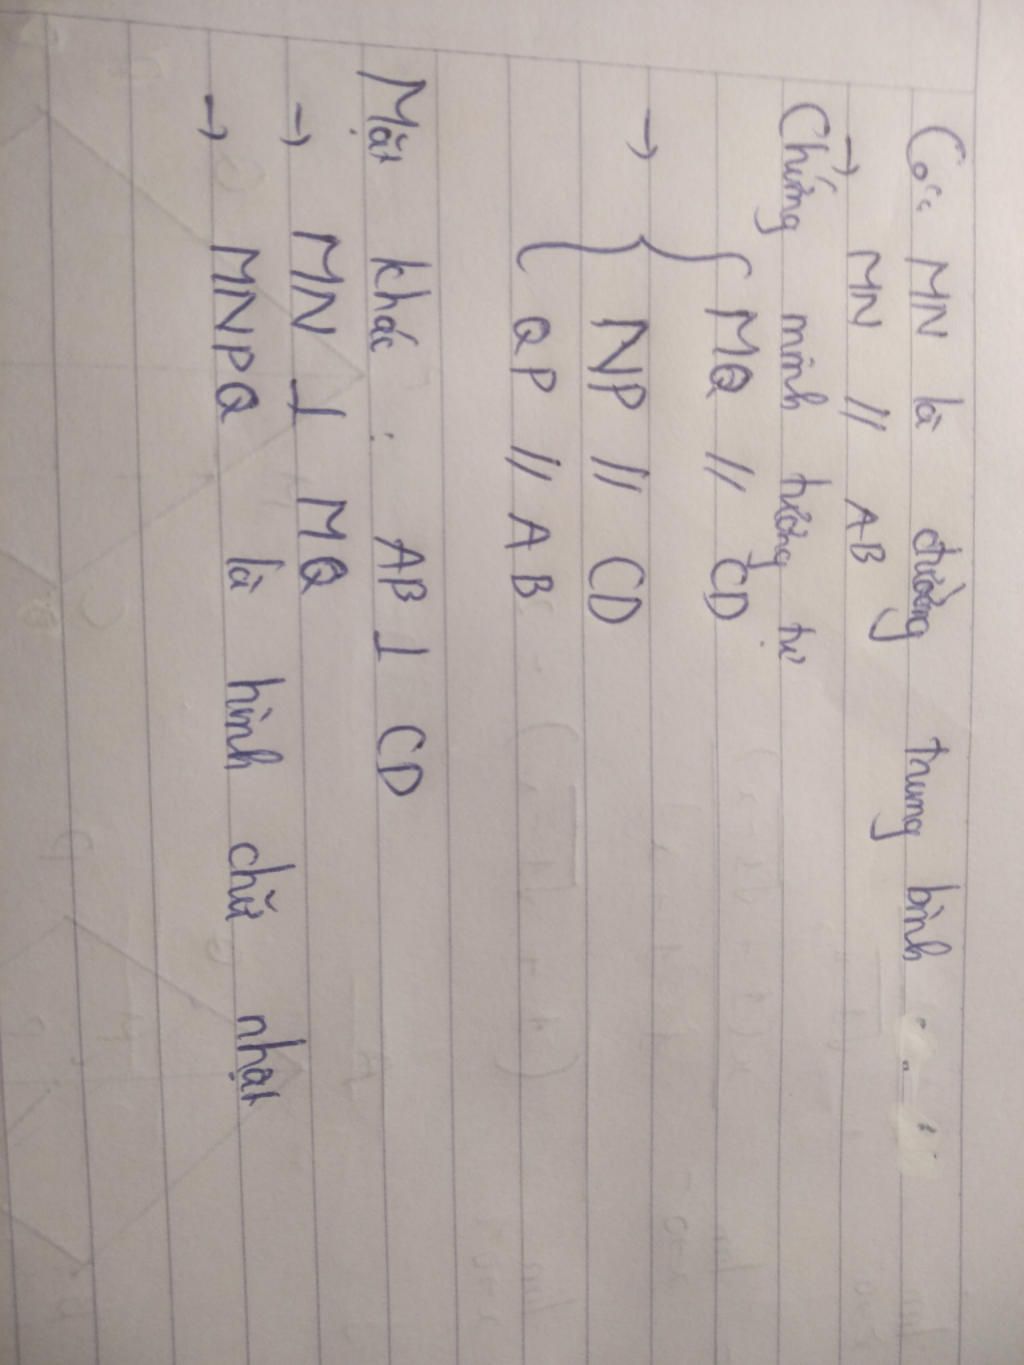 Có: MN là đường trung bình
→ MN // AB
Chứng minh tương tự
MQ // CD
→ { NP // CD
QP // AB
Mặt khác : AB ⊥ CD
→ MN ⊥ MQ
→ MNPQ là hình chữ nhật